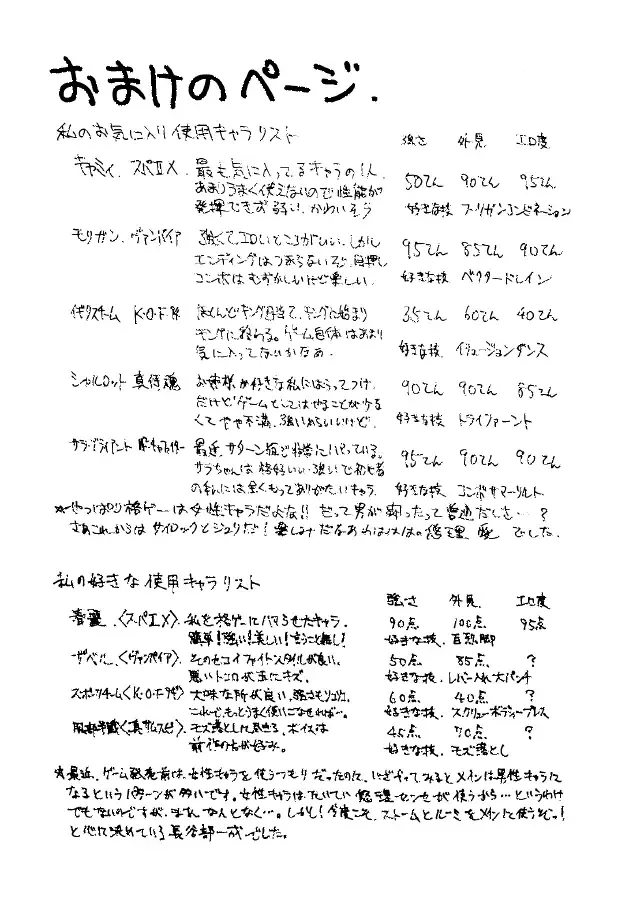 おまけのページ.
私のお気に入り使用キャラリスト 強さ 外見. エロ度
キャミィ. スパⅡX. 最も気に入ってるキャラの1人.
あまりうまく使えないので性能が
発揮できず弱い. かわいそう
50てん 90てん 95てん
好きな技 フーリガンコンビネーション
モリガン. ヴァンパイア 強くてエロいところがいい. しかし
エンディングはつまらないし, 目押し
コンボはむずかしいけど楽しい.
95てん 85てん 90てん
好きな技 ベクタードレイン
イギリスチーム K・O・F
ほとんどキング目当て. キングに始まり
キングに終わる。ゲーム自体はあまり
気に入ってないかなあ.
35てん 60てん 40てん
好きな技. イリュージョンダンス
シャルロット 真侍魂 お姉様が好きな私にはうってつけ.
だけどゲームとしてはやることが
くてやや不満. 強いからいいけど.
90てん 90てん 85てん
好きな技 トライスラッシュ
サラ・ブライアント 最近, サターン版で非常にハマっている。
サラちゃんは格好いい・強いで初心者
の私には全くもってありがたいキャラ.
95てん 90てん 90てん
好きな技 コンボサマーソルト
☆やっぱり格ゲーは女性キャラだよな!! だって男が闘ったって普通だしさ…?
さあこれからはサイロックとジュリだ! 楽しみだなあわはは の 悠理 愛 でした.
私の好きな使用キャラリスト
強さ 外見. エロ度
春麗.〈スパⅡX〉. 私を格ゲーにハマらせたキャラ.
簡単! 強い! 美しい! 言うこと無し!
90点 100点 95点
好きな技. 百烈脚
ザベル.〈ヴァンパイア〉. そのセコイファイトスタイルが良い.
悪いトコロが玉にキズ.
50点 85点. ?
好きな技. レバー入れ大パンチ
スポーツチーム〈K・O・F〉. 大味な所が良い. 強さもソコソコ.
これで, もっとうまく使いこなせれば….
60点 40点 ?
好きな技. スクリューボディープレス
モズ落としして気きる. ボイスは
前作の方が好み.
45点. 70点. ?
好きな技 モズ落とし
☆最近, ゲーム発売前は, 女性キャラを使うつもりだったのに, いざやってみるとメインは男性キャラに
なるというパターンが多いです. 女性キャラはたいてい悠理センセが使うから…というわけ
でもないのですが, まぁ, なんとなく…. しかし! 今度こそ, ストームとルーミをメインに使うぞっ!
と心に決めている長谷部一成でした.